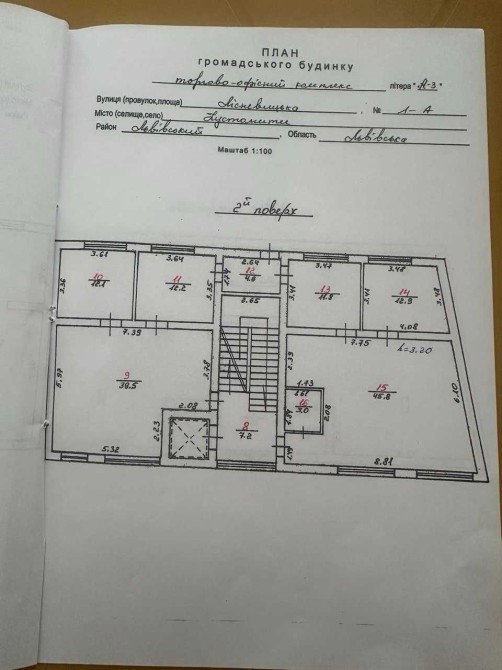 ПЛАН
громадського будинку
торгово-офісний комплекс літера "А-3"
Вулиця (провулок,площа) Лісневицька, № 1-А
Місто (селище,село) Пустомити
Район Львівський, Область Львівська
Масштаб 1:100
2й поверх
3.61 3.64 2.64 3.47 3.48
3.36 10 12.1 11 12.2 3.35 1.74 12 4.6 3.41 13 11.8 3.41 14 12.9 3.48
2.65
7.39 7.75 4.08
h=3.20
5.97 9 39.5 3.78 2.39 15 45.8 6.10
1.73
1.61
16 3.0 1.89 2.08
2.08
2.23 8 7.2 1.99
5.32 8.81